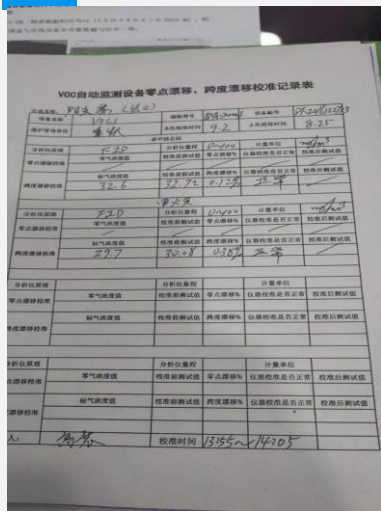 VOC自动监测设备零点漂移、跨度漂移校准记录表
设备名称 VOCs 规格型号 设备编号
维护管理单位 本次校准时间 9.2 上次校准时间 8.25
非甲烷总烃
分析仪原理 FID 分析仪量程 0~100 计量单位 mg/m³
零点漂移校准 零气浓度值 校准前测试值 零点漂移% 仪器校准是否正常 校准后测试值
跨度漂移校准 标气浓度值 校准前测试值 跨度漂移% 仪器校准是否正常 校准后测试值
32.6 32.72 0.12% 正常
分析仪原理 FID 分析仪量程 0~100 计量单位 mg/m³
零点漂移校准 零气浓度值 校准前测试值 零点漂移% 仪器校准是否正常 校准后测试值
跨度漂移校准 标气浓度值 校准前测试值 跨度漂移% 仪器校准是否正常 校准后测试值
29.7 30.08 0.38% 正常
分析仪原理 分析仪量程 计量单位
零点漂移校准 零气浓度值 校准前测试值 零点漂移% 仪器校准是否正常 校准后测试值
跨度漂移校准 标气浓度值 校准前测试值 跨度漂移% 仪器校准是否正常 校准后测试值
分析仪原理 分析仪量程 计量单位
点漂移校准 零气浓度值 校准前测试值 零点漂移% 仪器校准是否正常 校准后测试值
漂移校准 标气浓度值 校准前测试值 跨度漂移% 仪器校准是否正常 校准后测试值
人: 校准时间 13:55~14:05